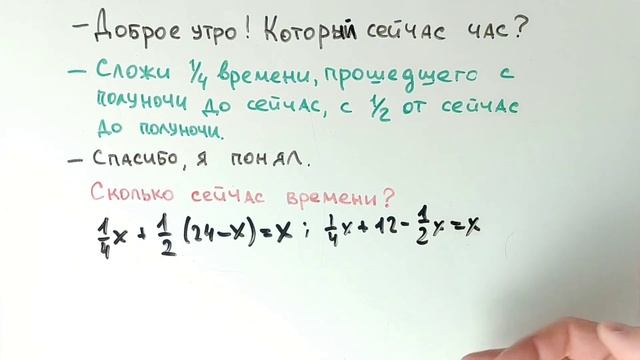 — Доброе утро! Который сейчас час?
— Сложи 1/4 времени, прошедшего с
полуночи до сейчас, с 1/2 от сейчас
до полуночи.
— Спасибо, я понял.
Сколько сейчас времени?
1/4x + 1/2 (24-x)=x ; 1/4x+12-1/2x=x